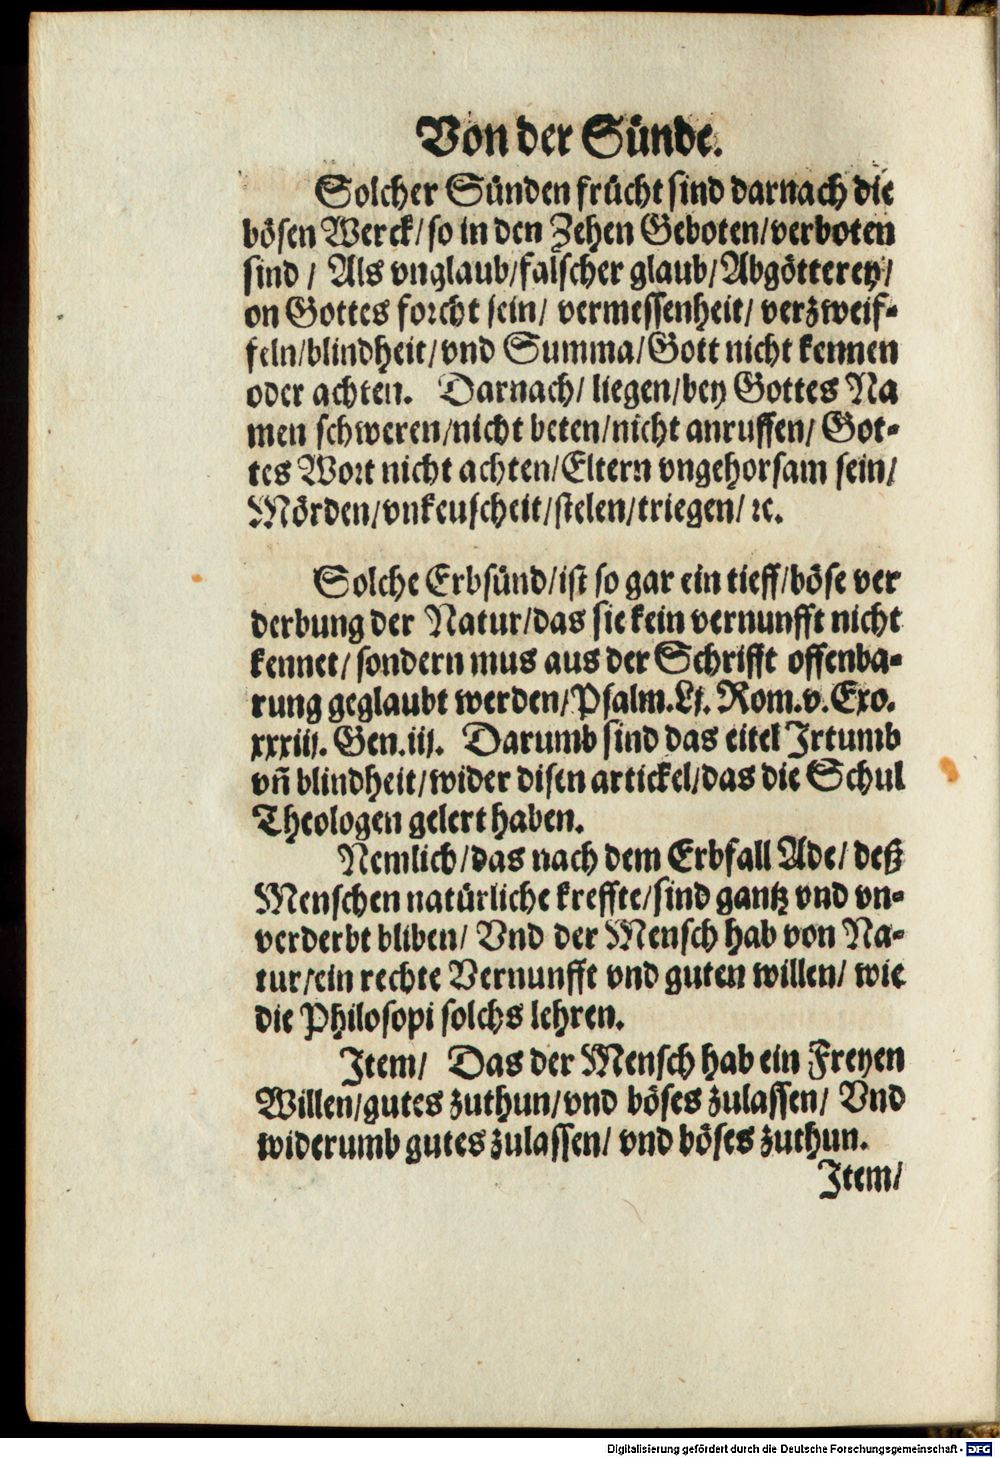 Von der Sünde.
Solcher Sünden frücht sind darnach die
bösen Werck/so in den Zehen Geboten/verboten
sind / Als vnglaub/falscher glaub/Abgötterey/
on Gottes forcht sein/ vermessenheit/ verzweif-
feln/blindheit/vnd Summa/Gott nicht kennen
oder achten. Darnach/ liegen/bey Gottes Na
men schweren/nicht beten/nicht anruffen/ Got-
tes Wort nicht achten/Eltern vngehorsam sein/
Mörden/vnkeuscheit/stelen/triegen/ ꝛc.
Solche Erbsünd/ist so gar ein tieff/böse ver
derbung der Natur/das sie kein vernunfft nicht
kennet/ sondern mus aus der Schrifft offenba-
rung geglaubt werden/Psalm.Lj. Rom.v. Exo.
xxxiij. Gen.iij. Darumb sind das eitel Irtumb
vñ blindheit/wider disen artickel/das die Schul
Theologen gelert haben.
Nemlich/das nach dem Erbfall Ade/ deß
Menschen natürliche kreffte/sind gantz vnd vn-
verderbt bliben/ Vnd der Mensch hab von Na-
tur/ein rechte Vernunfft vnd guten willen/ wie
die Philosopi solchs lehren.
Item/ Das der Mensch hab ein Freyen
Willen/gutes zuthun/vnd böses zulassen/ Vnd
widerumb gutes zulassen/ vnd böses zuthun.
Item/
Digitalisierung gefördert durch die Deutsche Forschungsgemeinschaft - DFG